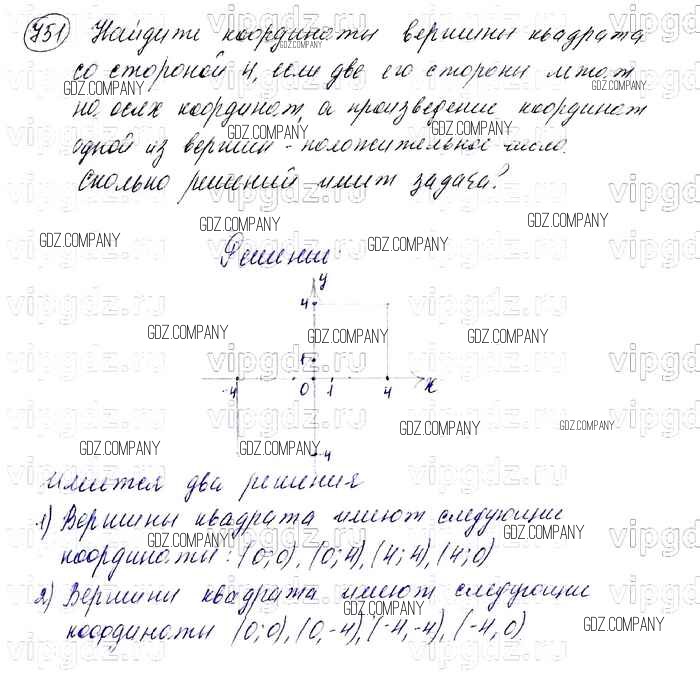 751 Найдите координаты вершины квадрата
со стороной 4, если две его стороны лежат
на осях координат, а произведение координат
одной из вершин - положительное число.
Сколько решений имеет задача?
Решение:
у
4
1
-4 0 1 4 х
-4
Имеется два решения
1) Вершины квадрата имеют следующие
координаты: (0;0), (0;4), (4;4), (4;0)
2) Вершины квадрата имеют следующие
координаты (0;0), (0,-4), (-4,-4), (-4,0)
GDZ.COMPANY
vipgdz.ru